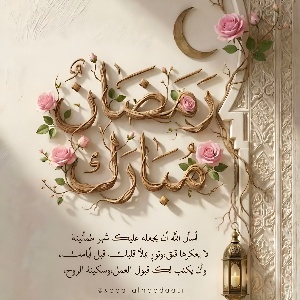 رمضان
مبارك
أسأل الله أن يجعله عليك شهر طمأنينة
لا يعكرها قلق، ونور يملأ قلبك قبل أيامك،
وأن يكتب لك قبول العمل، وسكينة الروح.